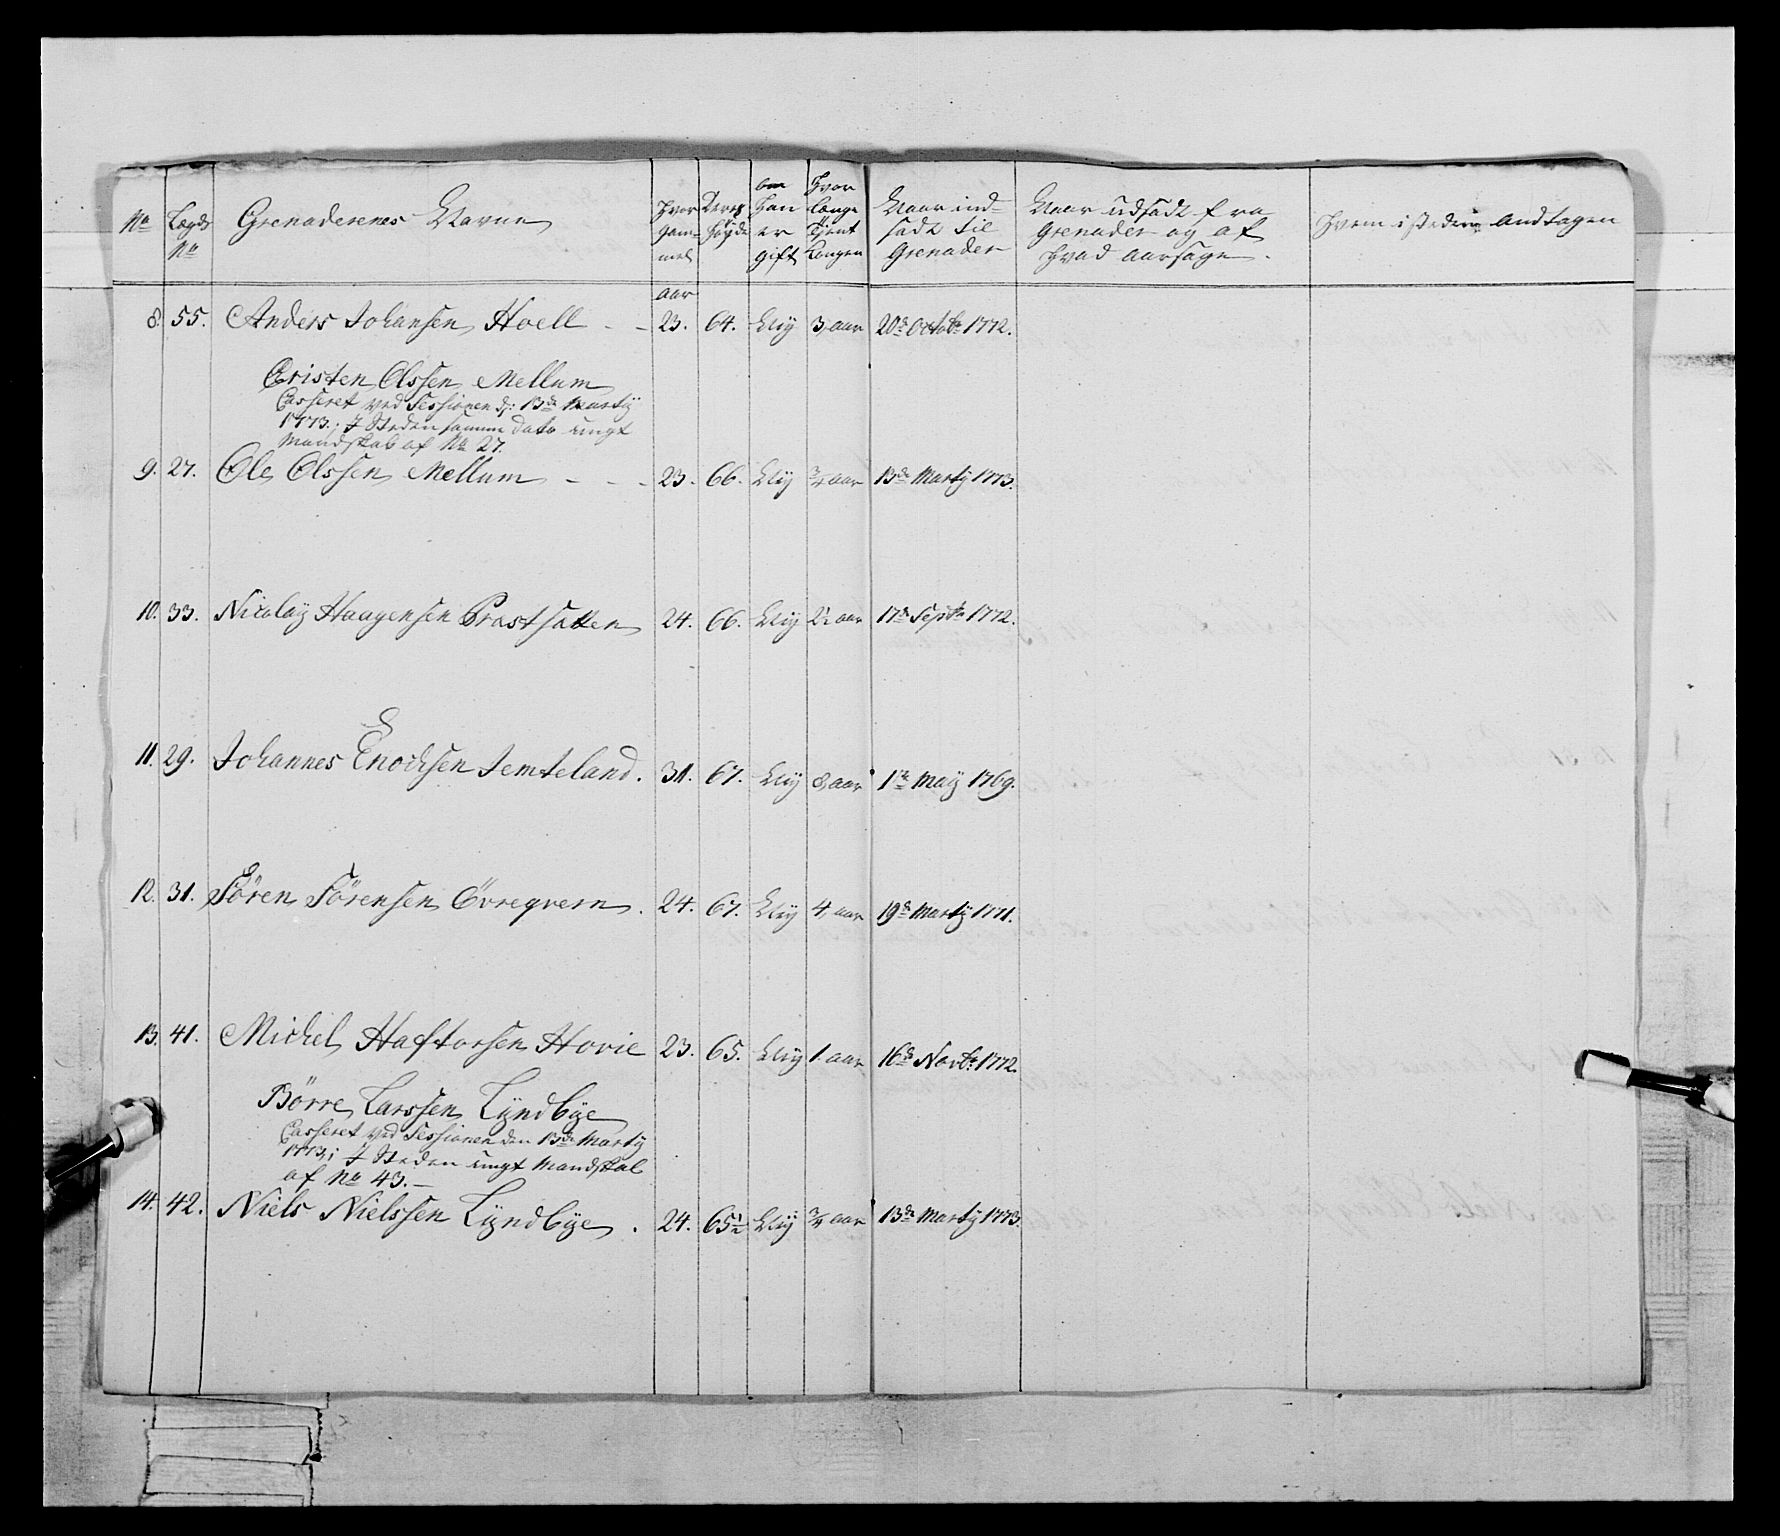 No
Lægds No
Grenaderenes Navne
Hvor gammel
Deres Høyde
om Han er gift
Hvor længe Tjent Kongen
Naar indsadt til Grenader
Naar udsadt fra Grenader og af Hvad aarsage.
Hvem i steden Andtagen
aar
8. 55. Anders Johansen Hoell - - 23. 64. Ugift 3 aar 20de Octobr 1772.
Cristen Olssen Mellum
Casseret ved Sessionen d: 13de Martÿ
1773. I Steden samme dato ungt
Mandskab af No 27.
9. 27. Ole Olssen Mellum - - - 23. 66. 3/4 aar 13de Martÿ 1773.
10. 33. Nicolaÿ Haagensen Prastsatten 24. 66. 2 1/2 aar 17de Septbr 1772.
11. 29. Johannes Enochsen Jemteland. 31. 67. 8 aar 1te Maÿ 1769.
12. 31. Sören Sörensen Övreqvern. 24. 67. 4 aar 19de Martÿ 1771.
13. 41. Michel Haftorsen Hovie 23. 65. 1. aar 16de Novbr 1772.
Börre Larssen Lÿndbÿe
Casseret ved Sessionen den 13de Martÿ
1773; I Steden ungt Mandskab
af No 43.-
14. 42. Niels Nielssen Lÿndbÿe. 24. 65 1/2 3/4 aar 13de Martÿ 1773.